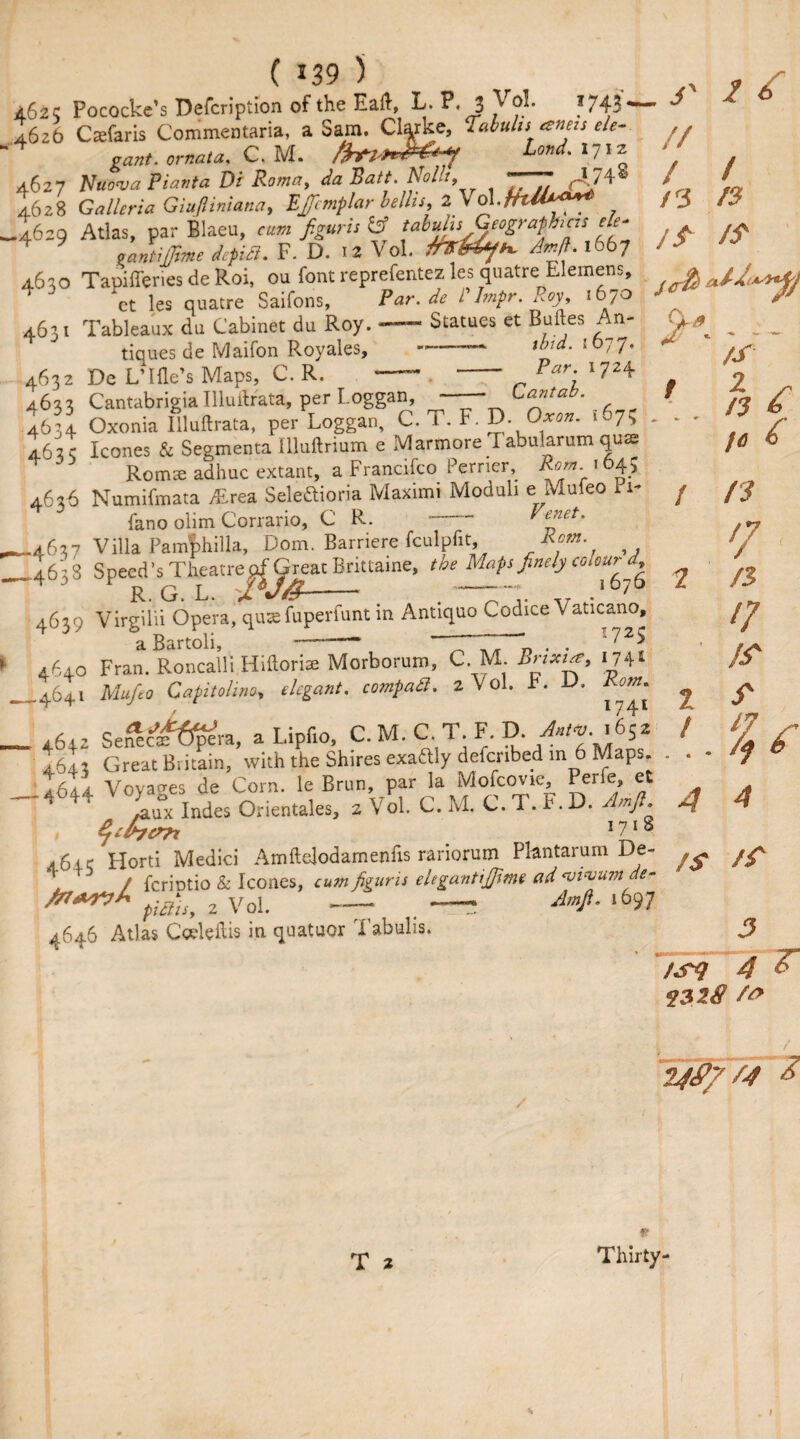 ( 139 )
4625 Pococke's Deſcription of the Eaſt, L. P. 3 Vol. 1743 — 5 2 6
4626 Cæſaris Commentaria, a Sam. Clarke, Tabulis æneis ele- 11
gant. ornata. C. M. Lond. 1712
4627 Nuova Pianta Di Roma, da Batt. Nolli, —— 1748 1 1
4628 Galleria Giuſtiniana, Eſſemplar bellis, 2 Vol. 13 13
—4629 Atlas, par Blaeu, cum figuris & tabulis Geographicis ele-
gantiſſime depict. F. D. 12 Vol. Amſt. 1667 15 15
4630 Tapiſſeries de Roi, ou font repreſentez les quatre Elemens,
et les quatre Saiſons, Par. de l'Impr. Roy, 1670
4631 Tableaux du Cabinet du Roy. —— Statues et Buſtes An-
tiques de Maiſon Royales, —— ibid. 1677.
4632 De L'Iſle's Maps, C. R. —— —— Par. 1724 15
4633 Cantabrigia Illuſtrata, per Loggan, —— Cantab. 1 2
4634 Oxonia Illuſtrata, per Loggan, C. T. F. D. Oxon. 1675 - - - 13 6
4635 Icones & Segmenta Illuſtrium e Marmore Tabularum quæ 10 6
Romæ adhuc extant, a Franciſco Perrier, Rom. 1645
4636 Numiſmata Ærea Selectioria Maximi Moduli e Muſeo Pi- 1 13
ſano olim Corrario, C R. —— Venet.
—4637 Villa Pamphilia, Dom. Barriere ſculpſit, Rom. 17
—4638 Speed's Theatre of Great Brittaine, the Maps finely colour'd,
R. G. L. —— —— 1676 2 13
4639 Virgilii Opera, quæ ſuperſunt in Antiquo Codice Vaticano, 17
a Bartoli, —— —— 1725
4640 Fran. Roncalli Hiſtoriæ Morborum, C. M. Brixiæ, 1741 15
—4641 Muſeo Capitolino, elegant. compact. 2 Vol. F. D. Rom. 2 5
1741
— 4642 Senecæ Opera, a Lipſio, C. M. C. T. F. D. Antv. 1652 1 17
4643 Great Britain, with the Shires exactly deſcribed in 6 Maps. - - - 9 6
—4644 Voyages de Corn. le Brun, par la Moſcovie, Perſe, et
aux Indes Orientales, 2 Vol. C. M. C. T. F. D. Amſt. 4 4
1718
4645 Horti Medici Amſtelodamenſis rariorum Plantarum De- 15 15
ſcriptio & Icones, cum figuris elegantiſſime ad vivum de-
pictis, 2 Vol. —— —— Amſt. 1697
4646 Atlas Cœleſtis in quatuor Tabulis. 3
159 4 6
2328 10
2487 14 6
T 2
Thirty-